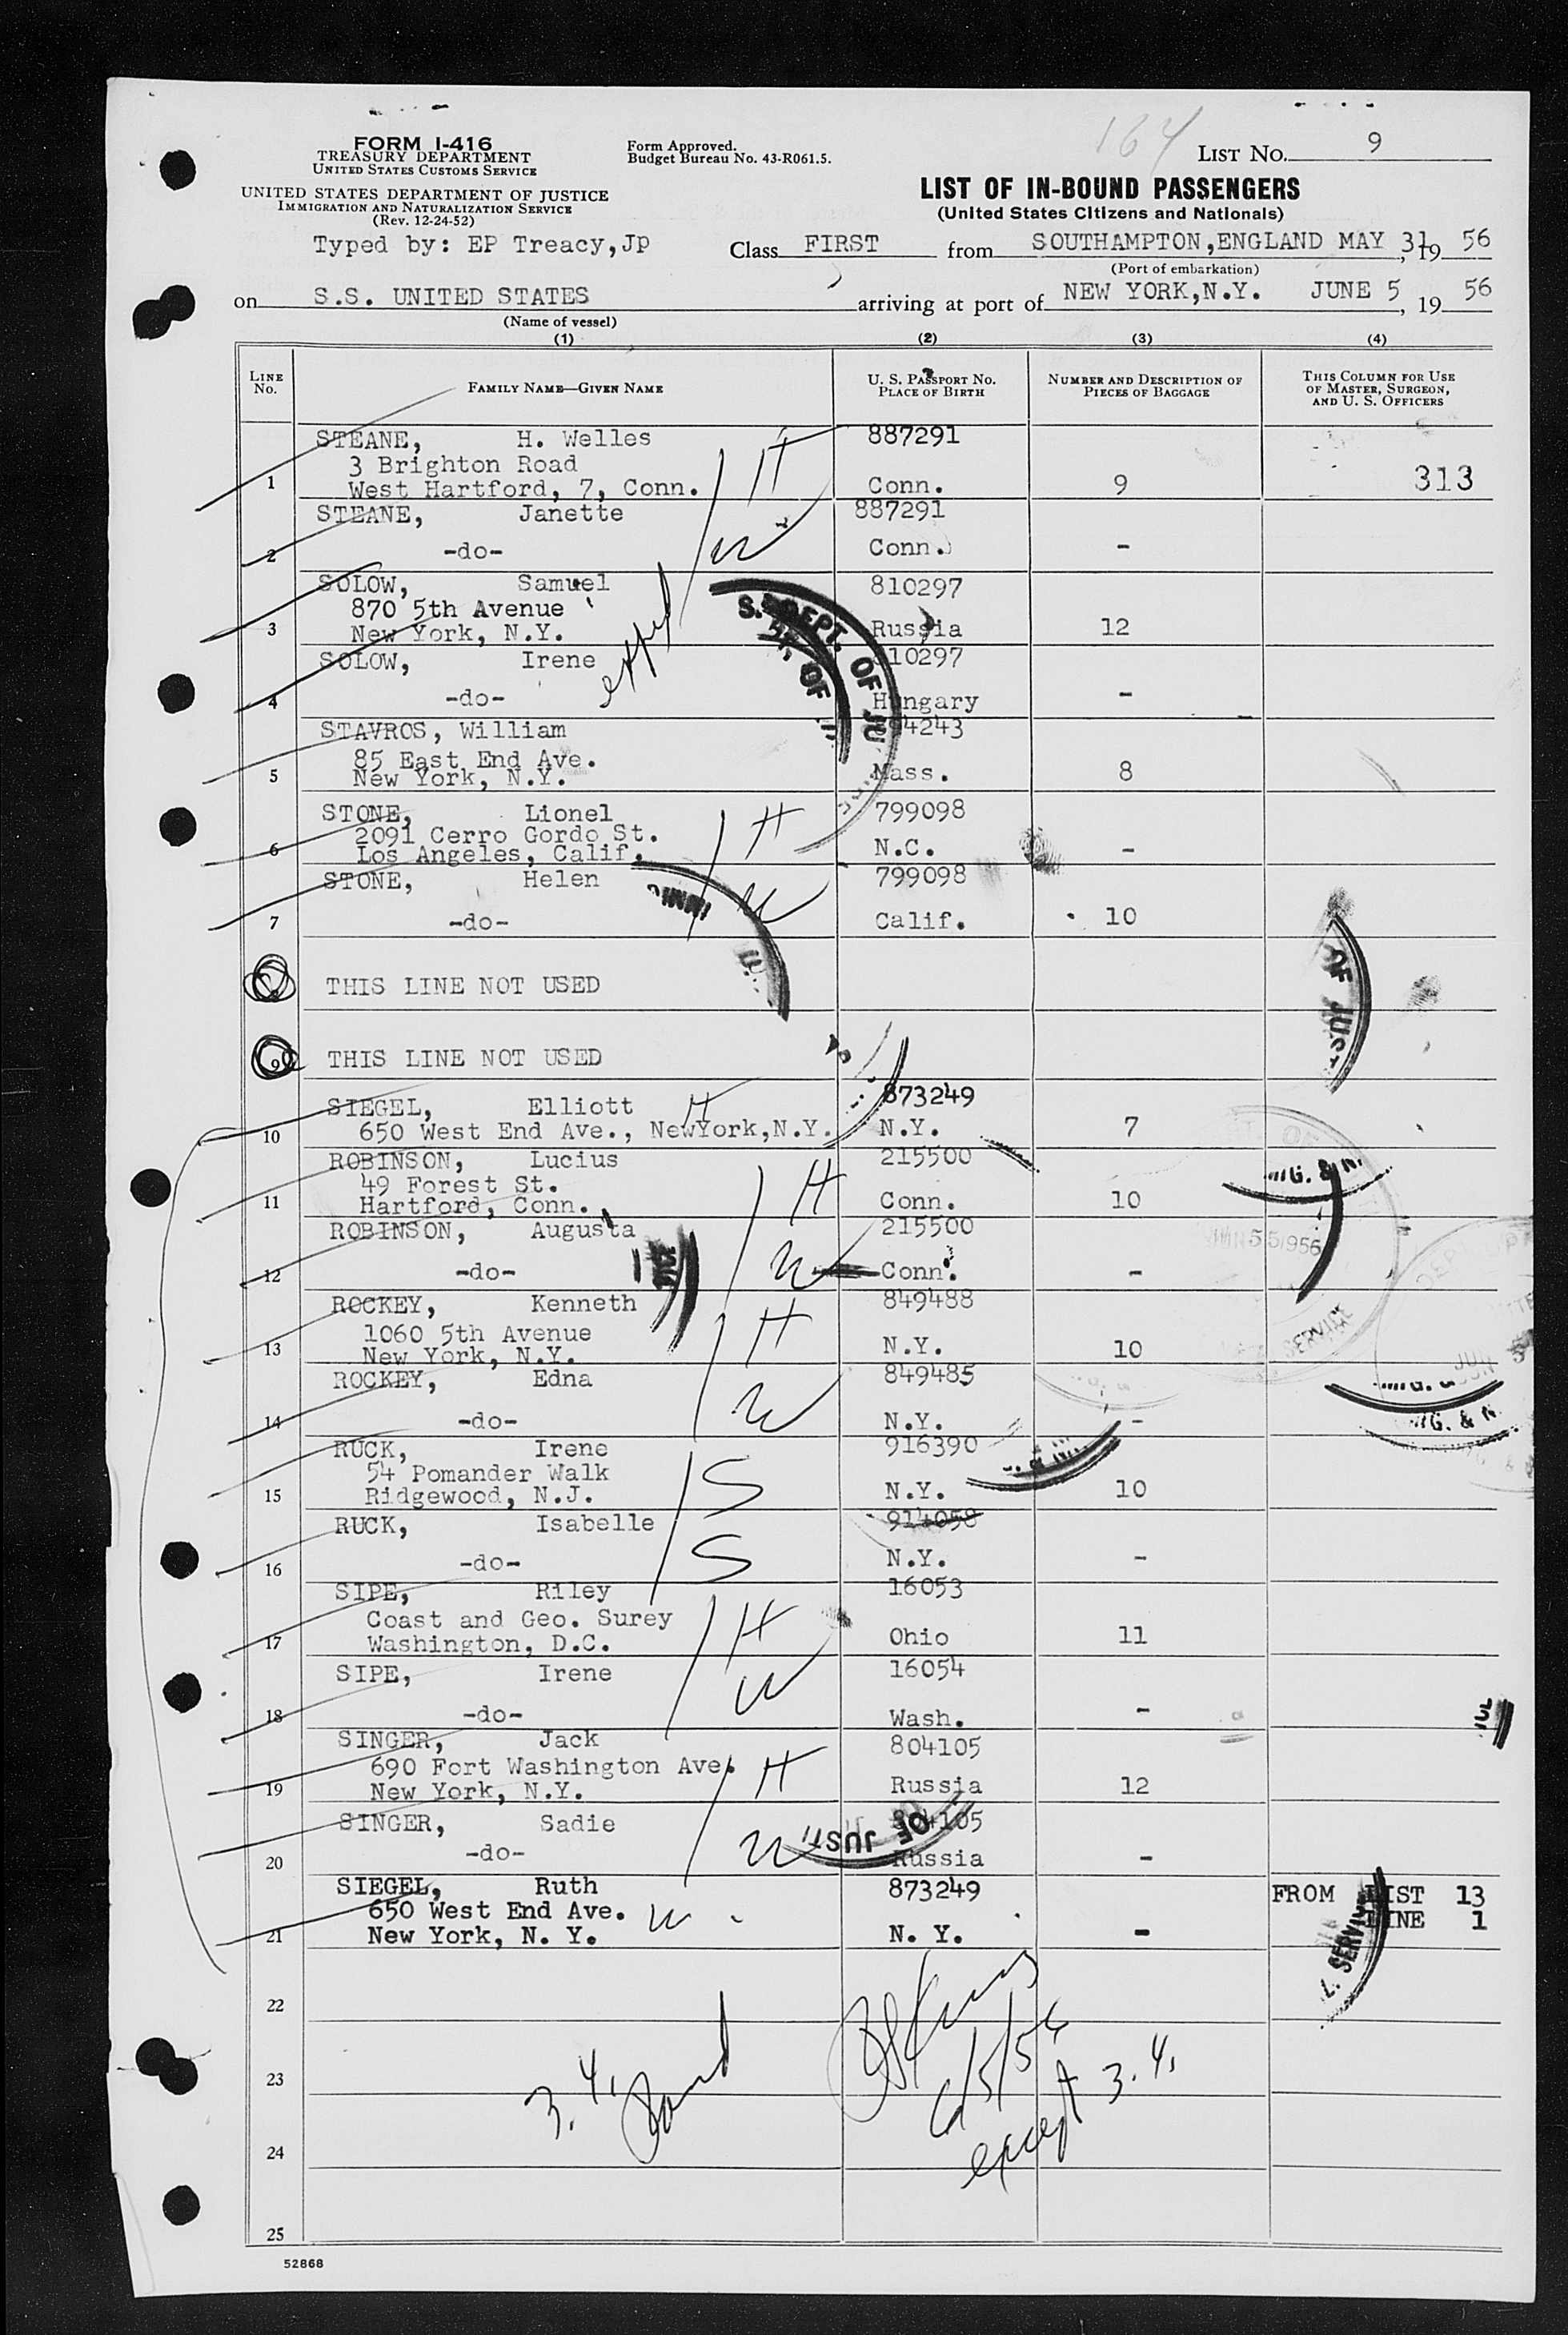 164
LIST No. 9
FORM I-416
TREASURY DEPARTMENT
UNITED STATES CUSTOMS SERVICE
Form Approved.
Budget Bureau No. 43-R061.5.
UNITED STATES DEPARTMENT OF JUSTICE
IMMIGRATION AND NATURALIZATION SERVICE
(Rev. 12-24-52)
LIST OF IN-BOUND PASSENGERS
(United States Citizens and Nationals)
Typed by: EP Treacy,Jp
Class FIRST from SOUTHAMPTON,ENGLAND MAY 31, 19 56
(Port of embarkation)
on S.S. UNITED STATES arriving at port of NEW YORK,N.Y. JUNE 5, 19 56
(Name of vessel)
(1) (2) (3) (4)
LINE No. FAMILY NAME—GIVEN NAME U. S. PASSPORT No. PLACE OF BIRTH NUMBER AND DESCRIPTION OF PIECES OF BAGGAGE THIS COLUMN FOR USE OF MASTER, SURGEON, AND U. S. OFFICERS
STEANE, H. Welles 887291
3 Brighton Road H
1 West Hartford, 7, Conn. Conn. 9 313
STEANE, Janette 887291
2 -do- W Conn. -
SOLOW, Samuel 810297
870 5th Avenue
3 New York, N.Y. Russia 12
SOLOW, Irene 810297
4 -do- Hungary -
STAVROS, William 4243
85 East End Ave.
5 New York, N.Y. Mass. 8
STONE, Lionel 799098
2091 Cerro Gordo St. H
6 Los Angeles, Calif. N.C. -
STONE, Helen 799098
7 -do- W Calif. 10
THIS LINE NOT USED
9 THIS LINE NOT USED
SIEGEL, Elliott H 873249
10 650 West End Ave., NewYork,N.Y. N.Y. 7
ROBINSON, Lucius 215500
49 Forest St. H
11 Hartford, Conn. Conn. 10
ROBINSON, Augusta 215500
12 -do- W Conn. -
ROCKEY, Kenneth 849488
1060 5th Avenue H
13 New York, N.Y. N.Y. 10
ROCKEY, Edna 849485
14 -do- W N.Y. -
RUCK, Irene 916390
54 Pomander Walk S
15 Ridgewood, N.J. N.Y. 10
RUCK, Isabelle 914058
16 -do- S N.Y. -
SIPE, Riley 16053
Coast and Geo. Surey H
17 Washington, D.C. Ohio 11
SIPE, Irene 16054
18 -do- W Wash. -
SINGER, Jack 804105
690 Fort Washington Ave. H
19 New York, N.Y. Russia 12
SINGER, Sadie 804105
20 -do- W Russia -
SIEGEL, Ruth 873249 FROM LIST 13
650 West End Ave. W LINE 1
21 New York, N. Y. N. Y. -
22
23
24
25
3. 4.
6/5/56
except 3. 4.
52868